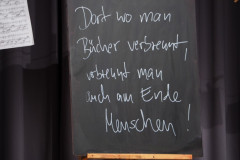 Dort wo man
Bücher verbrennt,
verbrennt man
auch am Ende
Menschen!